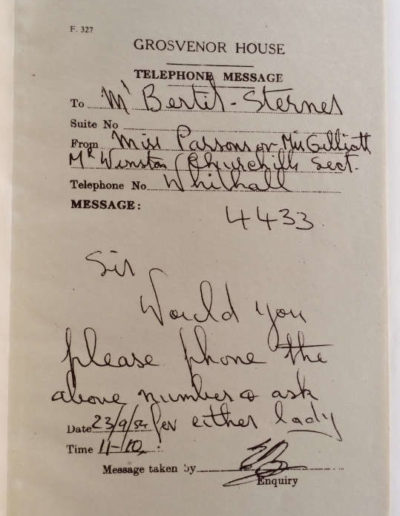 F. 327
GROSVENOR HOUSE
TELEPHONE MESSAGE
To Mr Bertil-Sternes
Suite No
From Miss Parsons or Miss Gilliott
Mr Winston Churchill's Sect.
Telephone No. Whithall
MESSAGE:
4433.
Sir
Would you
please phone the
above number & ask
Date 23/9/54 for either lady
Time 11-10.
Message taken by
Enquiry